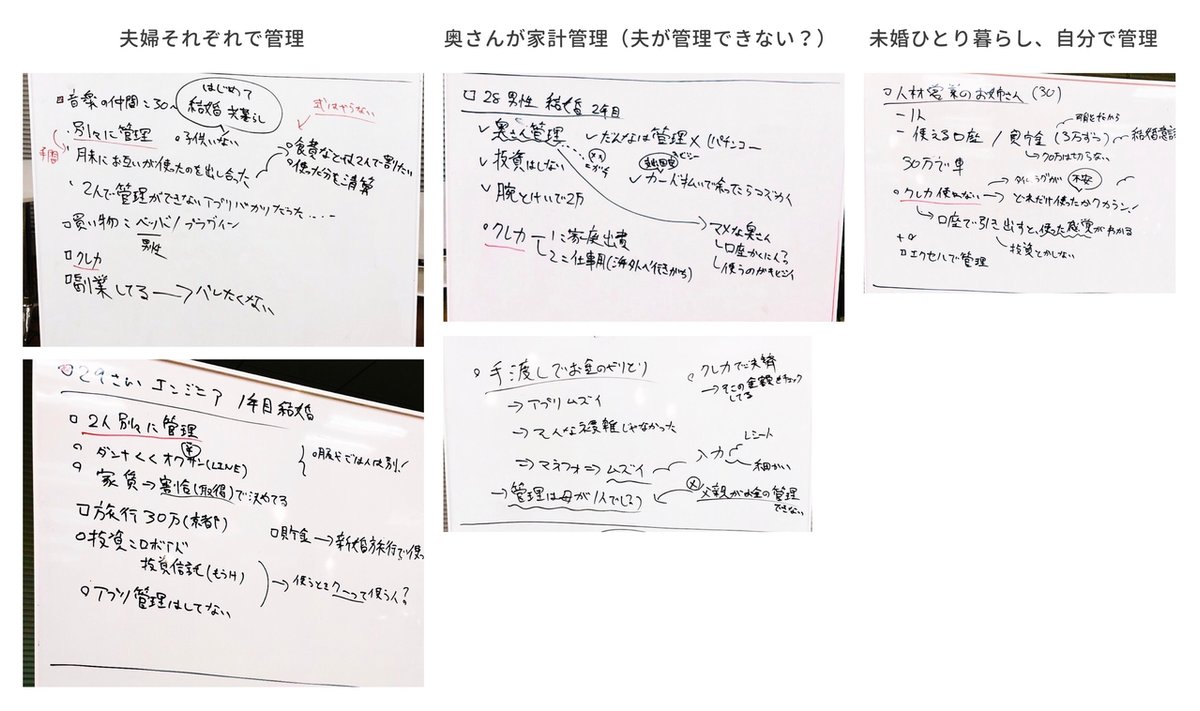 夫婦それぞれで管理
音楽の仲間：30
はじめて
結婚
暮らし
式はやらない
別々に管理
子供いない
食費など 2人で割りたい
使った分を
月末にお互いが使ったのを出し合った
2人で管理ができないアプリバカりだった...
買い物：ベッド/プラグイン
男性
クレカ
副業してる→バレたくない
29さい エンジニア 1年目結婚
2人別々に管理
オクサン(LINE)
家賃→割合(取得)で決めてる
旅行30万(京都)
貯金→新婚旅行で使っ
投資：ロボアド
投資信託(もうけ)
使うときクーって使う人？
アプリ管理はしてない
奥さんが家計管理（夫が管理できない？）
28 男性 結婚 2年目
奥さん管理
ダンナは管理×(パチンコ
投資はしない
カード払いで余ったら
腕とけいで2万
クレカ
1：家庭出費
2：仕事用(海外へ行きがち)
マメな奥さん
口座かくにん
手渡しでお金のやりとり
クレカでご決済
→そこの金額をチェック
してる
→アプリムズイ
→そんな複雑じゃなかった
レシート
⇒マネフォ⇒ムズイ
入力
細かい
→管理は母が1人でしてる
父親がお金の管理
できない
未婚ひとり暮らし、自分で管理
人材営業のお姉さん (30)
1人
使える口座/貯金(3万ずつ)
20万は切らない
30万で車
タイムラグが
不安
クレカ使わない→どれだけ使ったかワカラン!
口座で引き出すと、使った感覚がわかる
投資とかしない
エクセルで管理